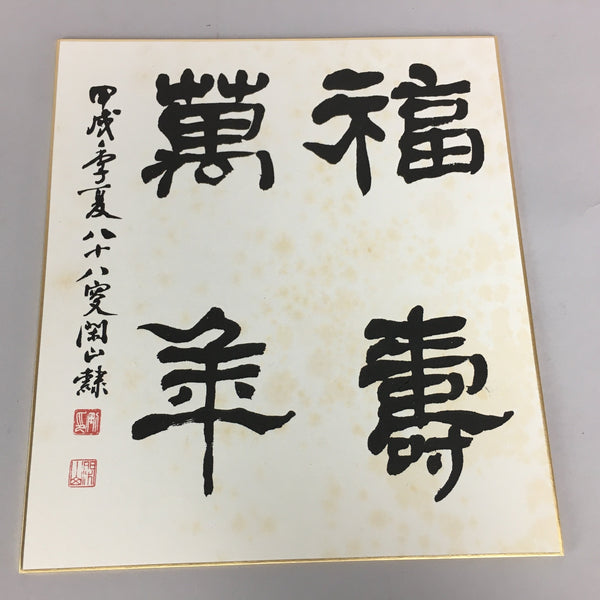 福壽
萬年
甲戌季夏八十八叟閑山隸